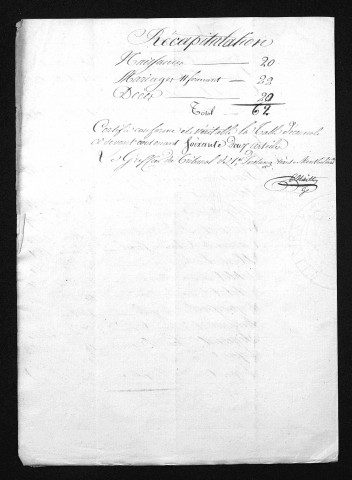 Récapitulation
Naissances — 20
Mariages — 22
Décès — 20
Total — 62
Certifié conforme et véritable la Table décennale
ci devant contenant soixante deux articles
Le Greffier du Tribunal de 1re